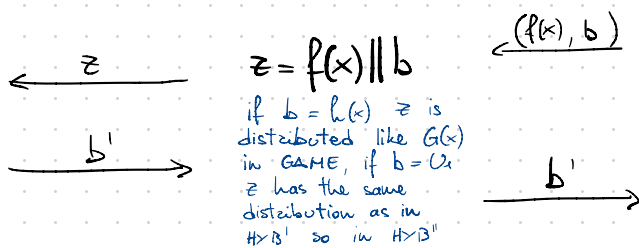 z
z = f(x) || b
(f(x), b)
if b = h(x) z is
distributed like G(x)
in GAME, if b = U₁
z has the same
distribution as in
HYB' so in HYB''
b'
b'